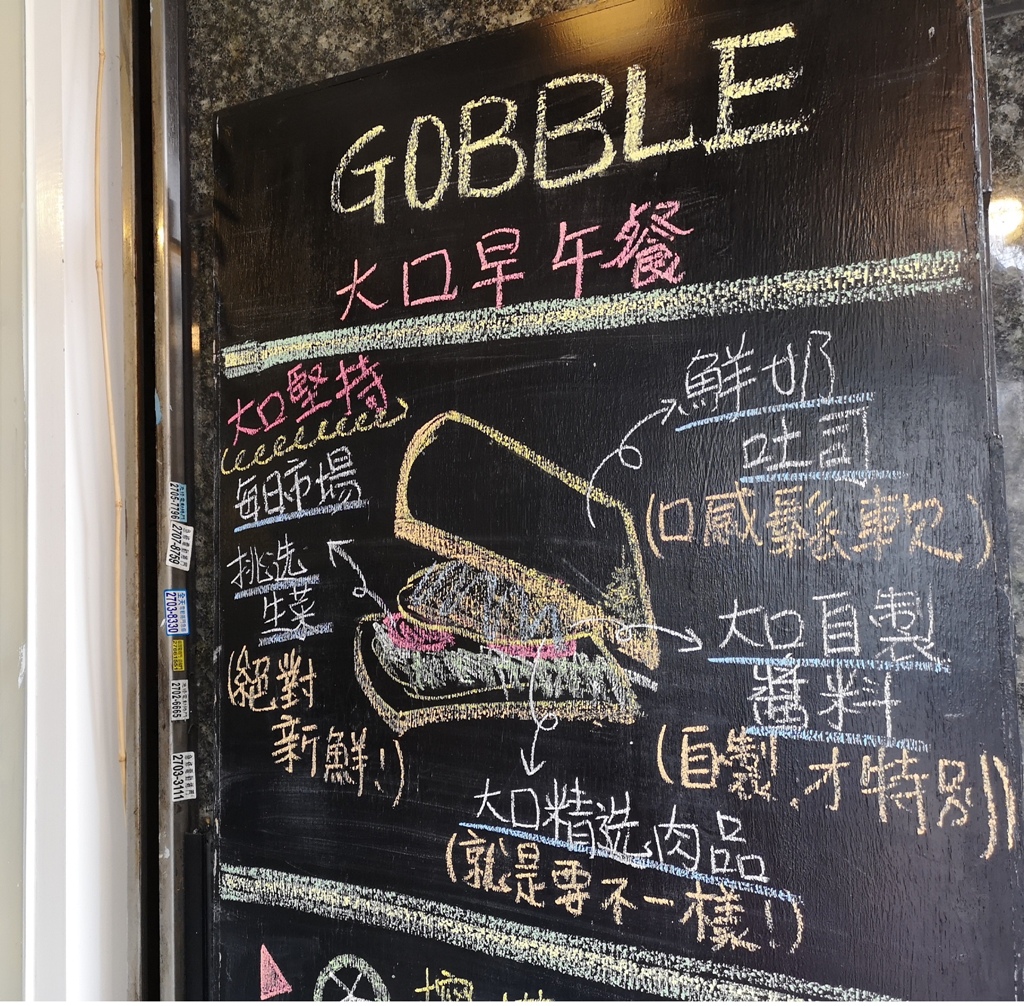 GOBBLE
大口早午餐
大口堅持
每日市場
挑选
生菜
(絕對
新鮮!)
鮮奶
吐司
(口感鬆軟)
大口自製
醬料
(自製,才特別)
大口精选肉品
(就是要不一樣!)
2705-7796
2707-8759
2703-8330
2702-6665
2703-3111